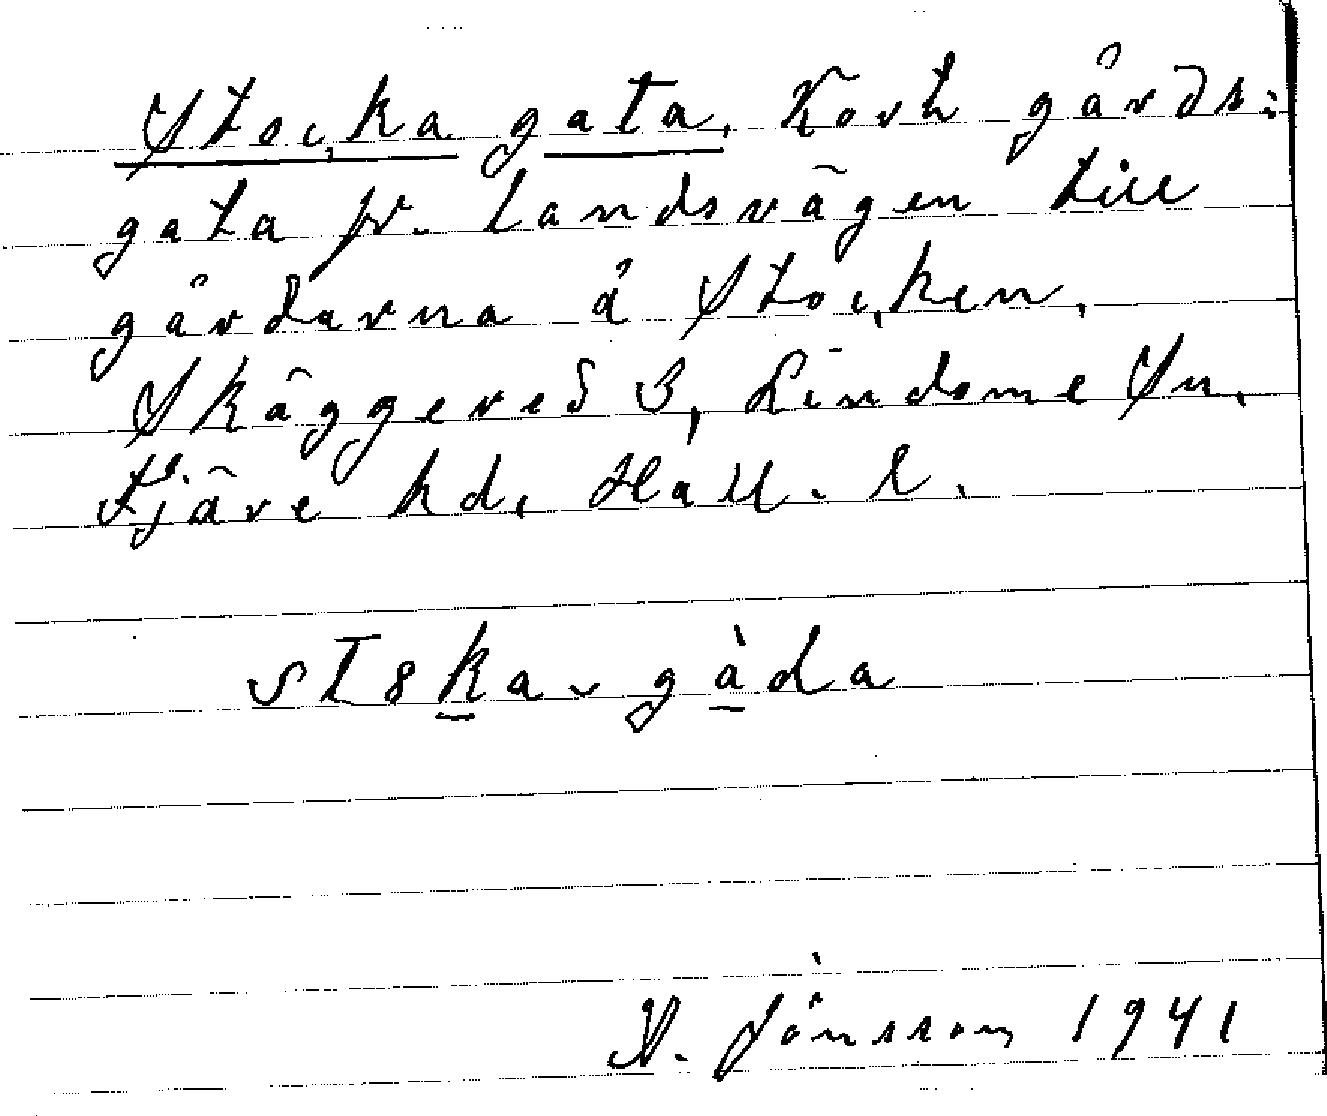 Stocka gata. Kort gårds:
gata fr. landsvägen till
gårdarna å Stocken.
Skäggered 3, Lindome Sn.
Fjäre hd. Hall. l.
N. Jönsson 1941